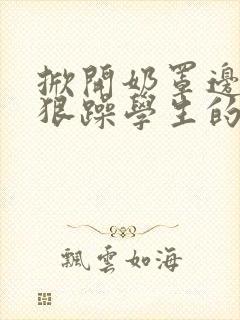 掀開奶罩邊
狠躁學生的
飄雲如海